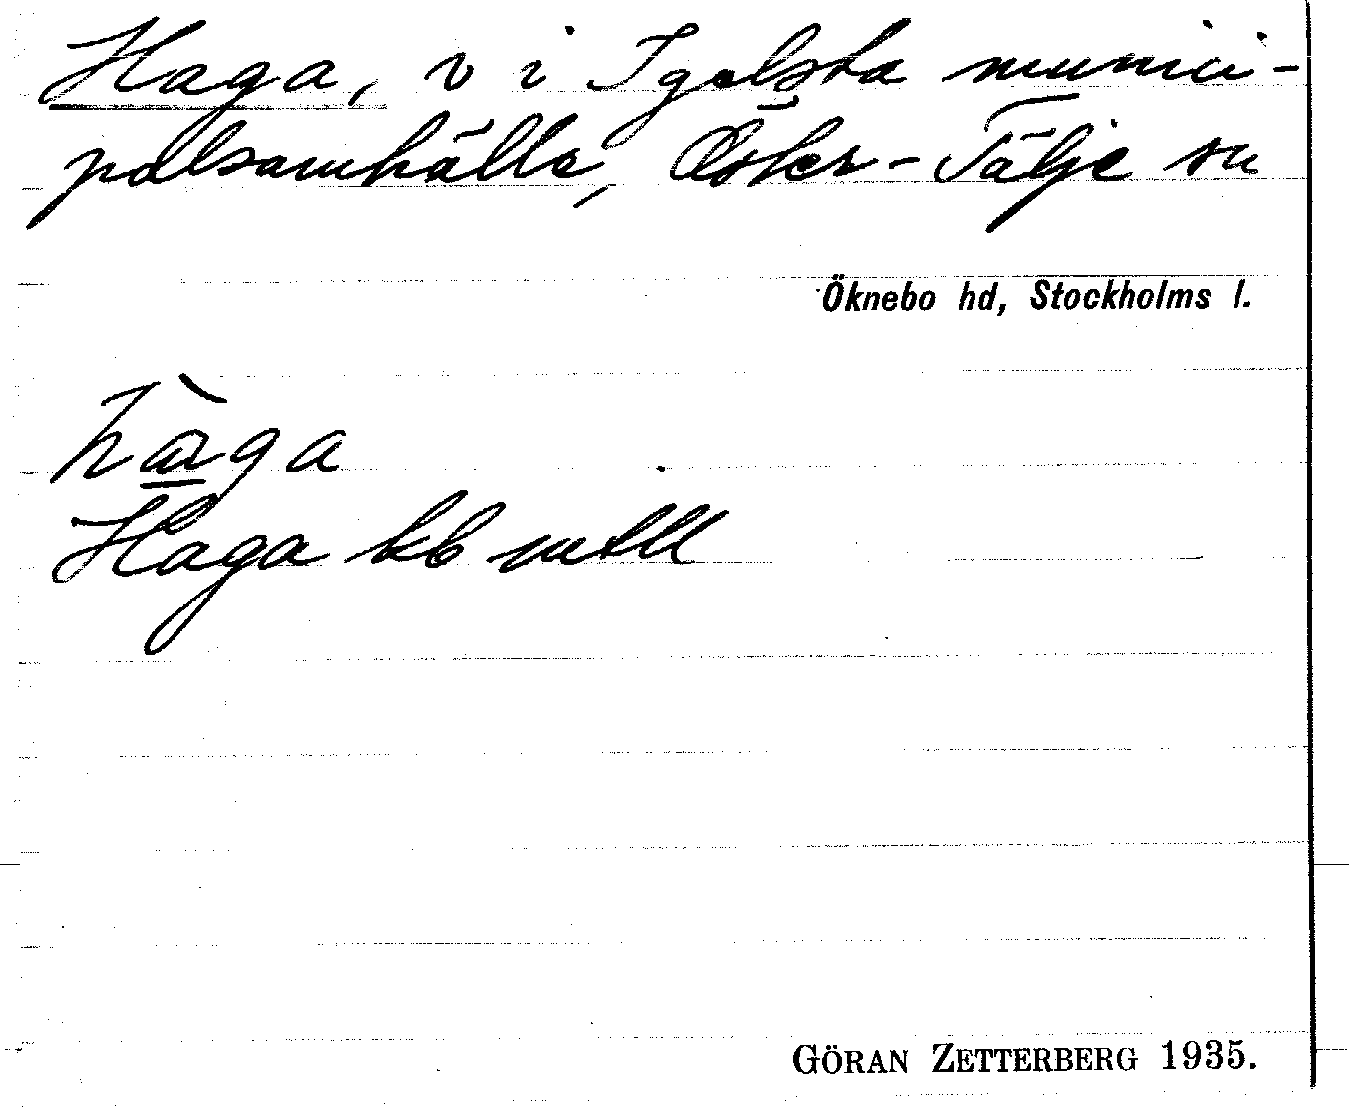 Haga, v i Igelsta munici-
palsamhälle, Öster-Tälje sn
Öknebo hd, Stockholms l.
hàga
Haga kb mtll
GÖRAN ZETTERBERG 1935.